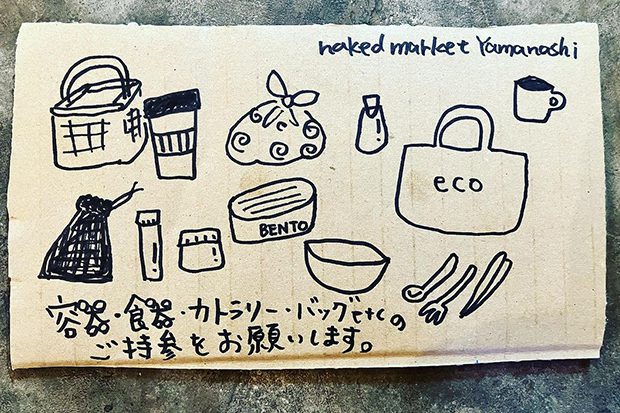 naked market Yamanashi
eco
BENTO
容器・食器・カトラリー・バッグetcの
ご持参をお願いします。